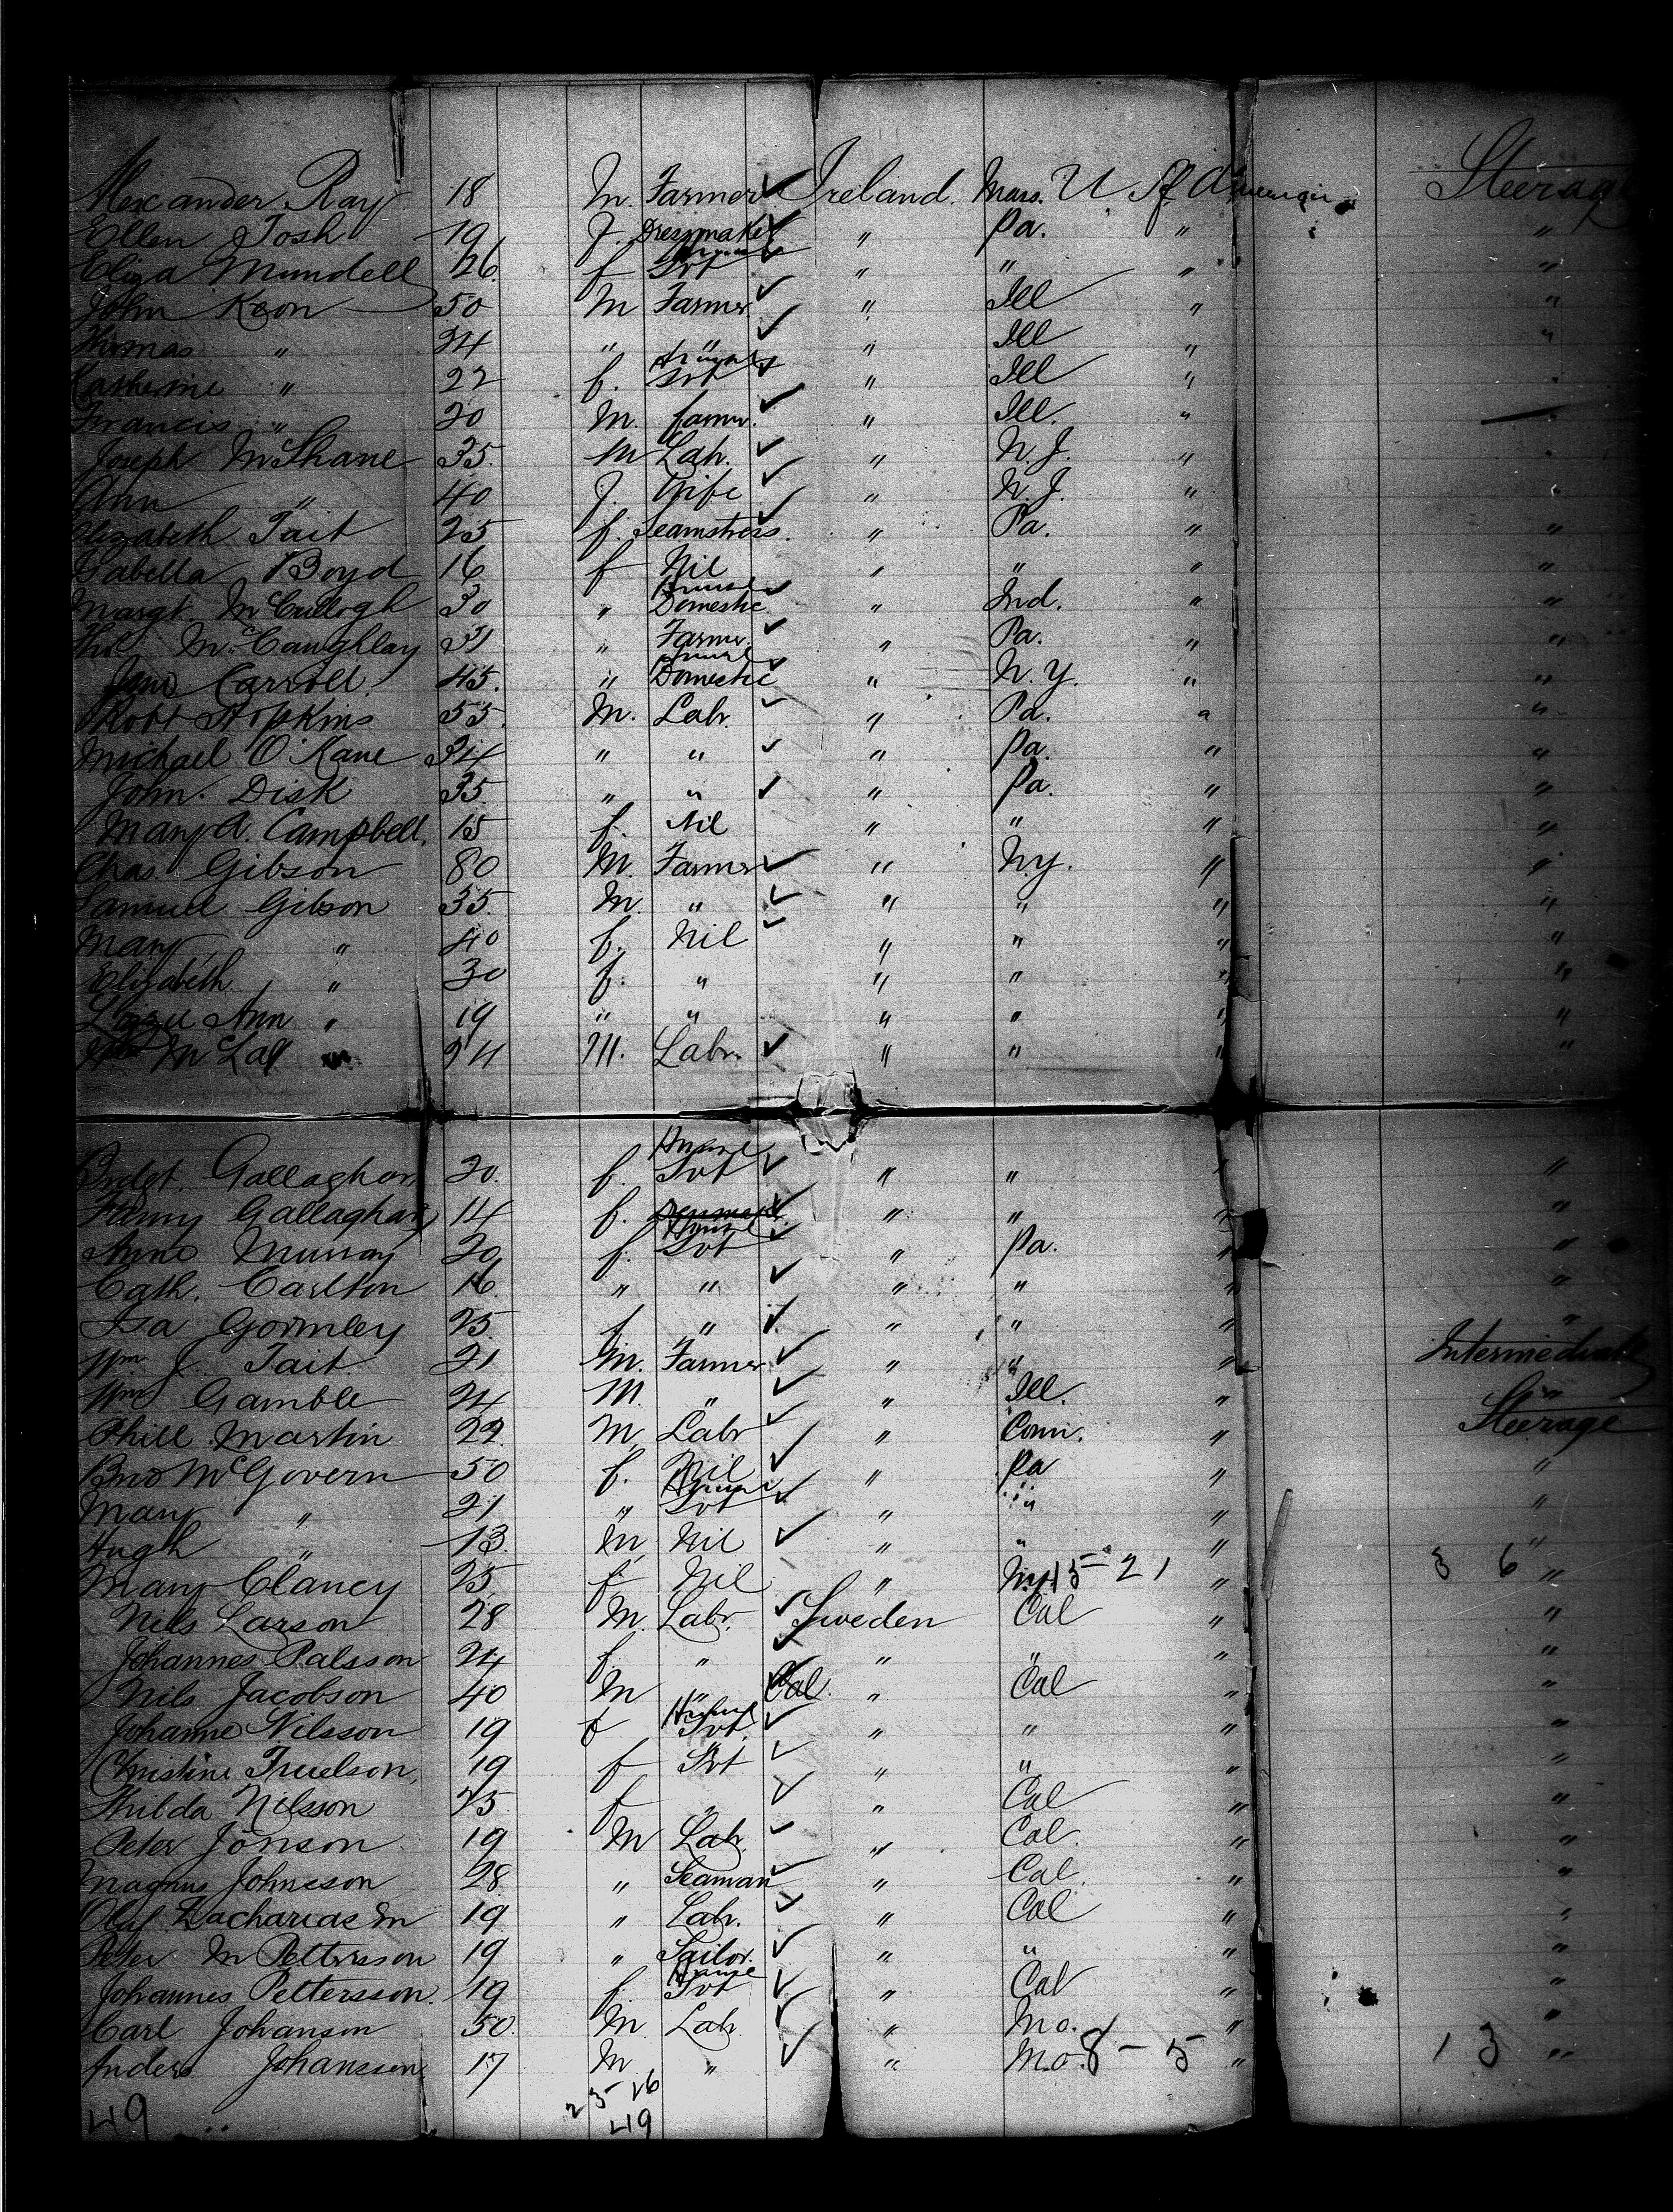 Alexander Ray 18 M. Farmer Ireland. Mass. U. S. of America Steerage
Ellen Tosh 19 f. Dressmaker " Pa. " "
Eliza Mundell 26 f Svt " " " "
John Keon 50 M Farmer " Ill " "
Thomas " 24 " " " Ill " "
Katherine " 22 f. House Svt " Ill " "
Francis " 20 M. farmr. " Ill. " "
Joseph McShane 35. M Lab. " N.J. " "
Ann " 40 f. Wife " N.J. " "
Elizabeth Tait 25 f. Seamstress. " Pa. " "
Isabella Boyd 16 f Nil " " " "
Margt. McCullogh 30 " House Domestic " Ind. " "
Thos. McCaughlay 31 " Farmr. " Pa. " "
Jane Carroll. 45. " House Domestic " N.Y. " "
Robt Hopkins 55. M. Labr. " Pa. " "
Michael O'Kane 34 " " " Pa. " "
John. Disk 35. " " " Pa. " "
Mary A. Campbell. 15 f. Nil " " " "
Chas. Gibson 80 M. Farmer " N.y. " "
Samuel Gibson 35. M. " " " " "
Mary " 40 f. Nil " " " "
Elizabeth " 30 f. " " " " "
Lizzie Ann " 19 " " " " " "
24 M. Labr. " " " "
Bridgt. Gallagher 20. f. House Svt " " " "
Fanny Gallagher 14 f. " " " "
Anne Murray 20 f. House Svt " Pa. " "
Cath. Carlton 16. " " " " " "
Isa Gormley 25 f " " " " "
Wm. J. Tait 21 M. Farmer " " " Intermediate
Wm Gamble 24 M. " " Ill. " "
Phill Martin 22. M. Labr " Conn. " Steerage
McGovern 50 f. Nil " Pa " "
Mary " 21 " House Svt " " " "
Hugh " 13. M. Nil " " " "
Mary Clancy 25 f Nil " N.y. 15-21 " 3 6 "
Nils Larson 28 M. Labr. Sweden Cal " "
Johannes Palsson 24 f. " " " " "
Nils Jacobson 40 M " Cal. " Cal " "
Johanne Nilsson 19 f House Svt. " " " "
Christine Truelson, 19 f Svt " " " "
Hilda Nilsson 25 f " " Cal " "
Peter Jönson 19 M Lab. " Cal. " "
Magnus Johnsson 28 " Seaman " Cal. " "
Olaf Zacharias Sn 19 " Lab. " Cal " "
Peter M Pettersson 19 " Sailor. " " " "
Johannes Pettersson. 19 f. House Svt " Cal " "
Carl Johanson 50. M Lab " Mo. " "
Anders Johansson 17 M. " " Mo. 8-5 " 13 "
49 49